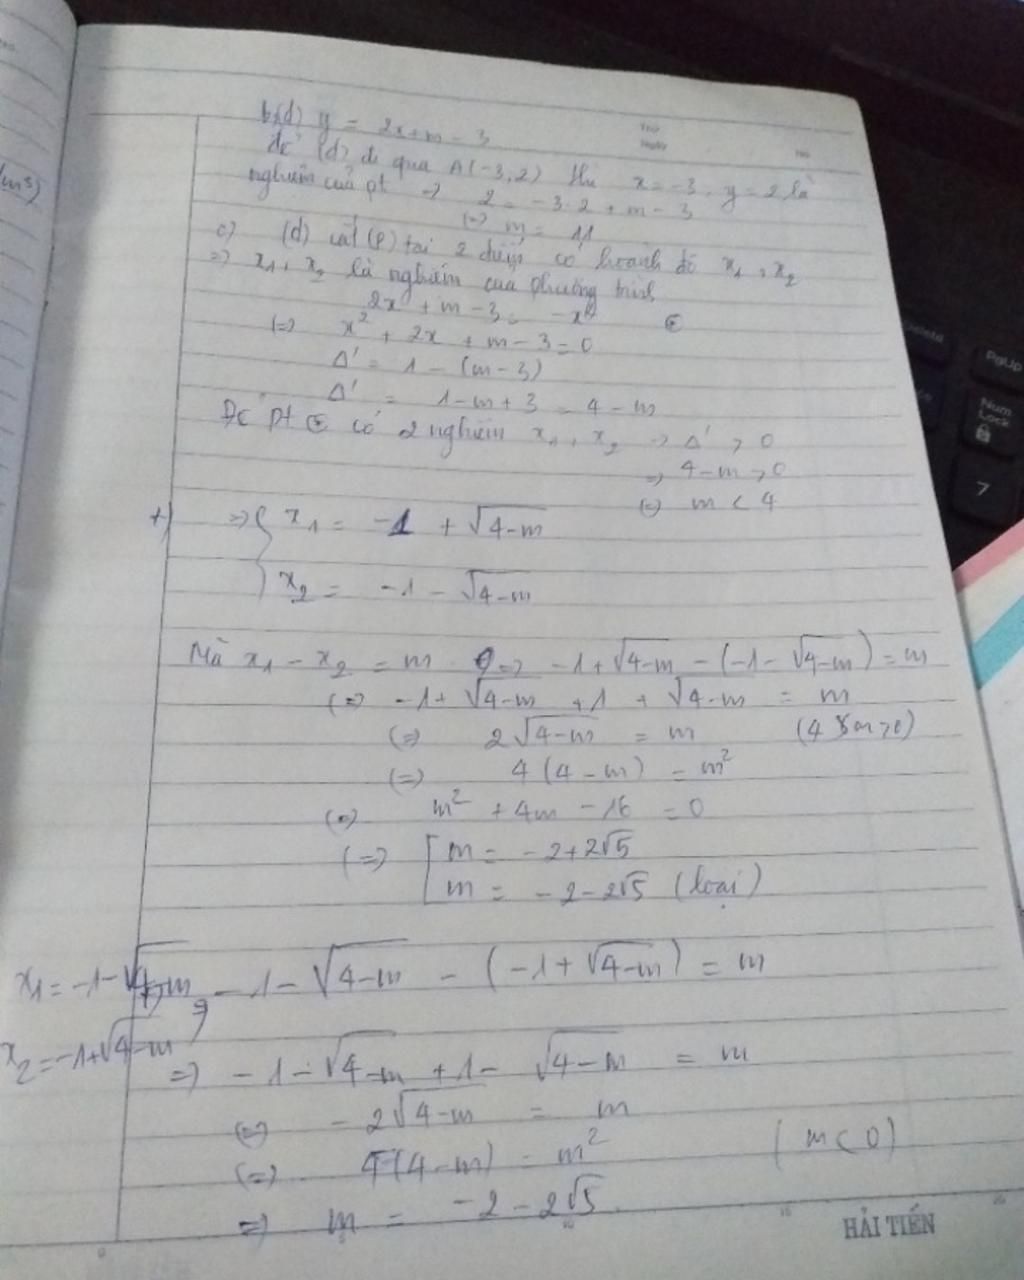 b, (d) y = 2x + m - 3
để (d) đi qua A(-3, 2) thì x = -3, y = 2 là
nghiệm của pt => 2 = -3.2 + m - 3
(=) m = 11
c) (d) cắt (P) tại 2 điểm có hoành độ x₁, x₂
=> x₁, x₂ là nghiệm của phương trình
2x + m - 3 = -x²
(=) x² + 2x + m - 3 = 0
Δ' = 1 - (m - 3)
Δ' = 1 - m + 3 = 4 - m
Để pt có 2 nghiệm x₁, x₂ => Δ' > 0
=> 4 - m > 0
(=) m < 4
+) => { x₁ = -1 + √(4-m)
x₂ = -1 - √(4-m)
Mà x₁ - x₂ = m => -1 + √(4-m) - (-1 - √(4-m)) = m
(=) -1 + √(4-m) + 1 + √(4-m) = m
(=) 2√(4-m) = m (4 m > 0)
(=) 4(4 - m) = m²
(=) m² + 4m - 16 = 0
(=) [ m = -2 + 2√5
m = -2 - 2√5 (loại)
x₁ = -1 - √(4-m)
+) -1 - √(4-m) - (-1 + √(4-m)) = m
x₂ = -1 + √(4-m)
=> -1 - √(4-m) + 1 - √(4-m) = m
(=) -2√(4-m) = m
(=) 4(4 - m) = m² (m < 0)
=> m = -2 - 2√5
HẢI TIẾN
Delete
PgUp
Num
Lock
7